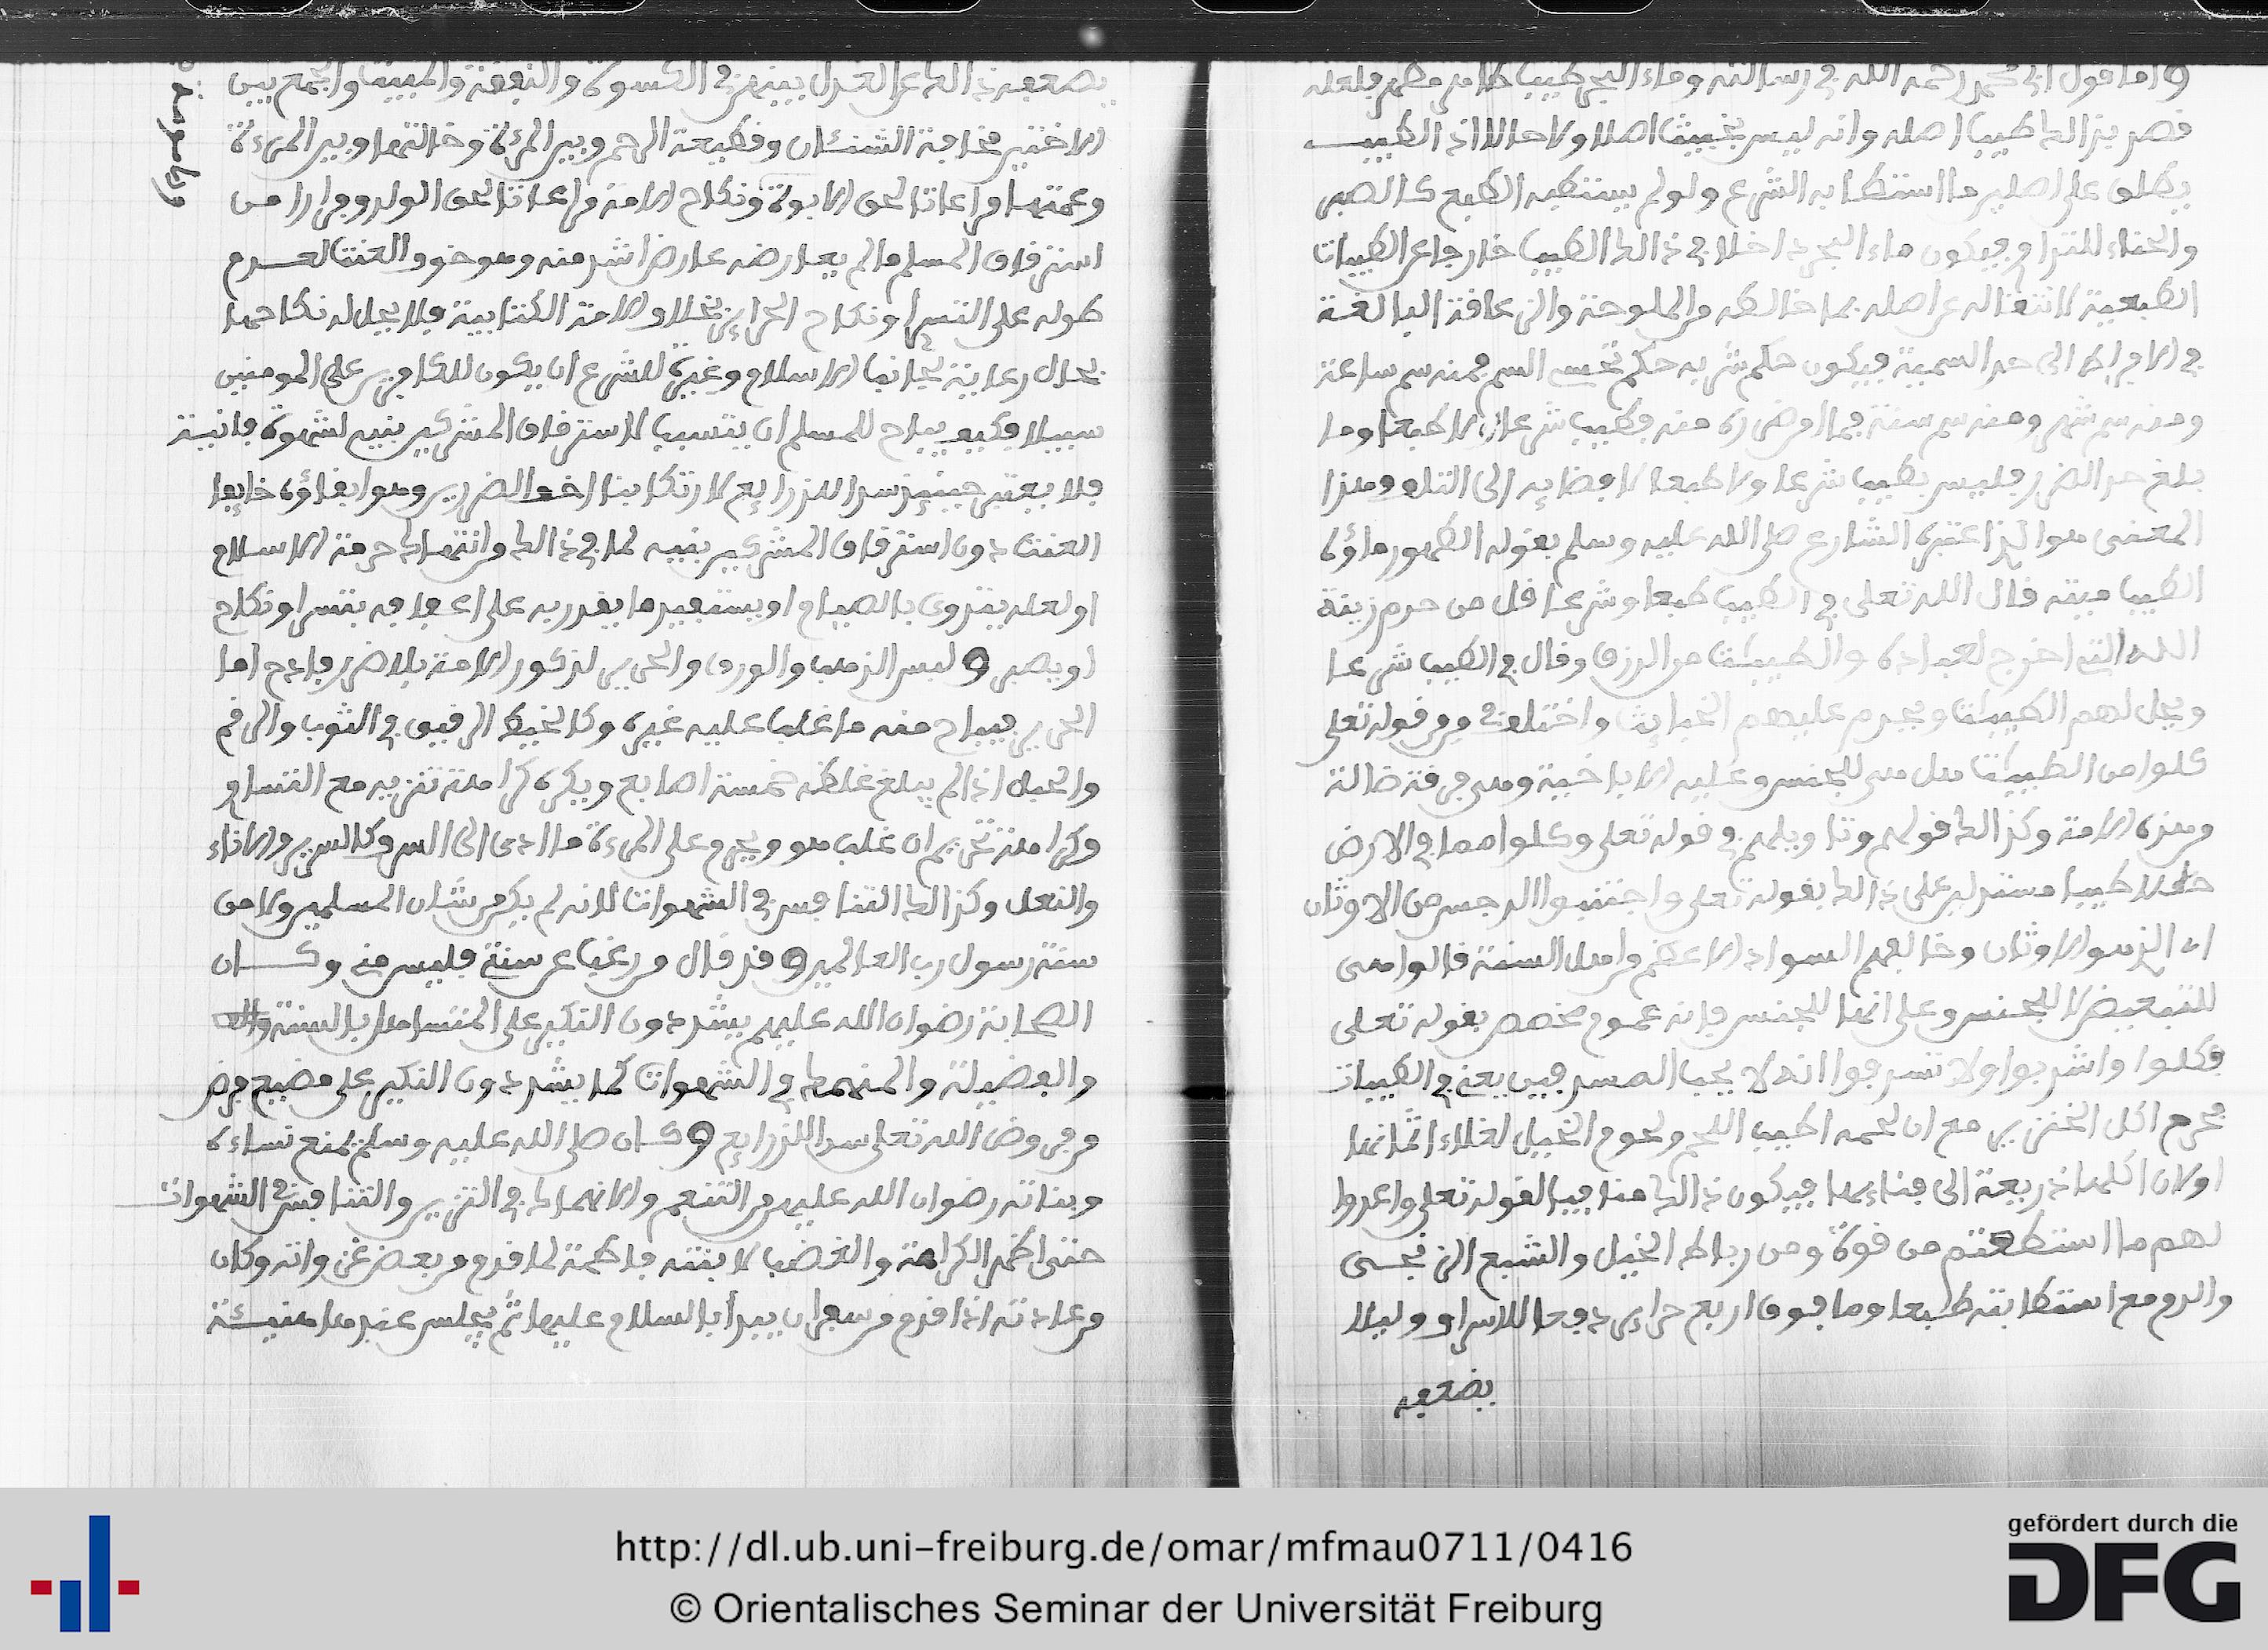 واما قول ابي محمد رحمه الله في رسالته وماء البحر طيب طاهر مطهر فلعله
قصد بذالك طيب اصله وانه ليس بخبيث اصلا ولا حالا اذ الطيب
يطلق على اصلين ما استطابه الشرع ولو لم يستطبه الطبع كالصبر
والحناء للتداوي فيكون ماء البحر داخلا في ذالك الطيب خارجا عن الطيبات
الطبعية لانتقاله عن اصله بما خالطه من الملوحة والزعاقة البالغة
في الافراط الى حد السمية فيكون حكم شربه حكم تحسي السم فمنه سم ساعة
ومنه سم شهر ومنه سم سنة فما امن ضرره منه فطيب شرعا لا طبعا وما
بلغ حد الضرر فليس بطيب شرعا ولا طبعا لافضايه الى التلف وهذا
المعنى هو الذي اعتبره الشارع صلى الله عليه وسلم بقوله الطهور ماؤه
الطيب ميتته قال الله تعلى في الطيب طبعا وشرعا قل من حرم زينة
الله التي اخرج لعباده والطيبات من الرزق وقال في الطيب شرعا
ويحل لهم الطيبات ويحرم عليهم الخبايث واختلف في من قوله تعلى
كلوا من الطيبات هل هي للجنس وعليه الاباحية وهي فرقة ضالة
من هذه الامة وكذالك قولهم وتاويلهم في قوله تعلى وكلوا مما في الارض
حللا طيبا مستدلين على ذالك بقوله تعلى واجتنبوا الرجس من الاوثان
اي الذي هو الاوثان وخالفهم السواد الاعظم من اهل السنة قالوا هي
للتبعيض لا للجنس وعلى انها للجنس فانه عموم مخصص بقوله تعلى
فكلوا واشربوا ولا تسرفوا انه لا يحب المسرفين يعني في الطيبات
فحرم اكل الخنزير مع ان لحمه اطيب اللحم ولحوم الخيل لغلاء اثمانها
اولان اكلها ذريعة الى فنايها فيكون ذالك منافيا لقوله تعلى واعدوا
لهم ما استطعتم من قوة ومن رباط الخيل والشبع الذي يجسى
والدم مع استطابته طبعا وما فوق اربع حراير دفعا للاسراف وليلا
يضعفه
يضعفه ذالك عن العدل بينهن في الكسوة والنفقة والمبيت والجمع بين
الاختين مخافة الشنئان وقطيعة الرحم وبين المرئة وخالتها وبين المرءة
وعمتها مراعات لحق الابوة ونكاح الامة مراعات لحق الولد وفرارا من
استرقاق المسلم ما لم يعارضه عارض اشد منه وهو خوف العنت لعدم
طوله على التسري ونكاح الحراير بخلاف الامة الكتابية فلا يحل له نكاحها
بحال رعاية لجانب الاسلام وغيرة للشرع ان يكون للكافرين على المومنين
سبيلا فكيف يباح للمسلم ان يتسبب لاسترقاق المشركين بنيه لشهوة فانية
فلا يعتبر حينئذ سد الذرايع لارتكابنا اخف الضررين وهو ابقاؤه خايفا
العنت دون استرقاق المشركين بنيه لما في ذالك من انتهاك حرمة الاسلام
او لعله يتزوى بالصيام او يستفيد ما يقدر به على اعفافه بتسر او نكاح
او يصبر ولبس الذهب والورق والحرير لذكور الامة بلا ضرر فادح اما
الحرير فيباح منه ما غلب عليه غيره وكالخيط الرقيق في الثوب والرقم
والحبل اذا لم يبلغ غلظه خمسة اصابع ويكره كراهة تنزيه مع التساوي
وكراهة تحريم ان غلب هو ويحرم على المرءة ما ادى الى السرف كالسرير والاناء
والنعل وكذالك التنافس في الشهوات لانه لم يكن من شان المسلمين ولا من
سنة رسول رب العالمين وقد قال من رغب عن سنتي فليس مني وكان
الصحابة رضوان الله عليهم يشددون النكير على المتساهل بالسنة
والفضيلة والمنهمك في الشهوات كما يشددون النكير على مضيع فرض
من فروض الله تعلى سدا للذرايع وكان صلى الله عليه وسلم يمنع نساءه
وبناته رضوان الله عليهن من التنعم والانهماك في التزين والتنافس في الشهوات
حتى اظهر الكراهة والغضب لابنته فاطمة لما قدم من بعض غزواته وكان
من عادته اذا قدم من سفر ان يبدأ بالسلام عليها ثم يجلس عندها هنيئة
http://dl.ub.uni-freiburg.de/omar/mfmau0711/0416
© Orientalisches Seminar der Universität Freiburg
gefördert durch die
DFG